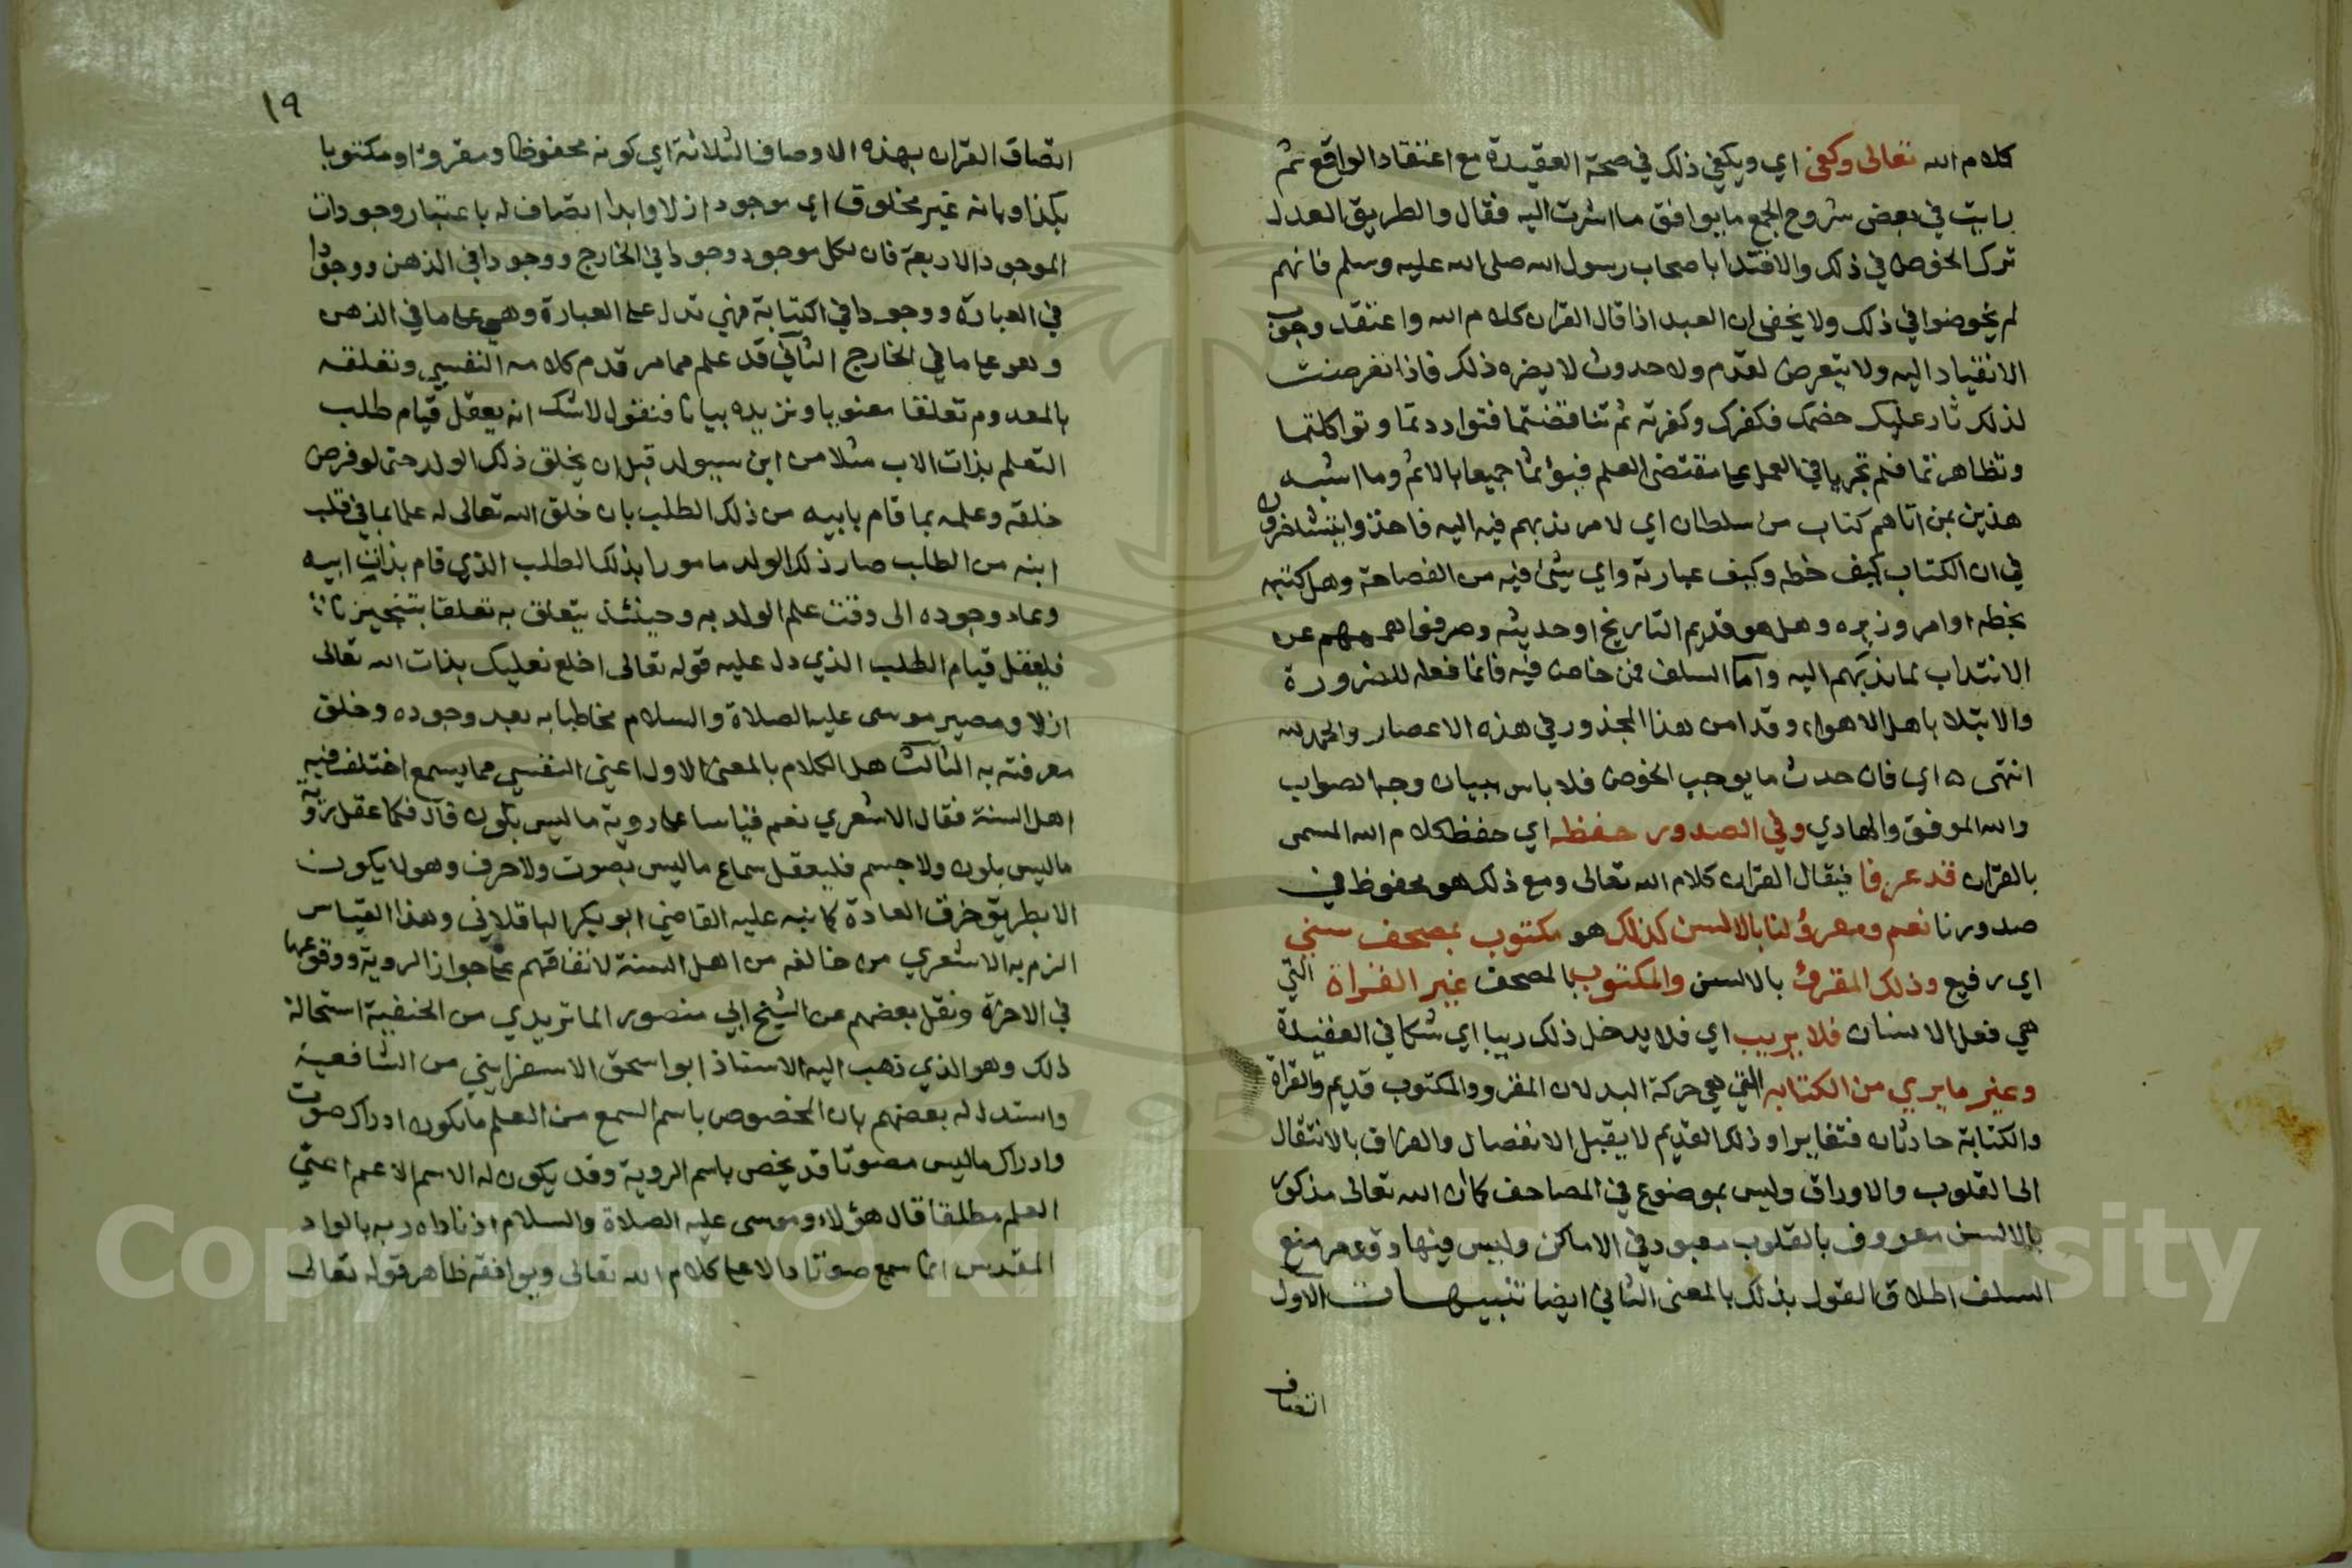 كلام الله تعالى وكفى اي ويكفي ذلك في صحة العقيدة مع اعتقاد الواقع ثم
رايت في بعض شروح الجمع ما يوافق ما اشرت اليه فقال والطريق العدل
ترك الخوض في ذلك والاقتدا باصحاب رسول الله صلى الله عليه وسلم فانهم
لم يخوضوا في ذلك ولا يخفى ان العبد اذا قال القران كلام الله واعتقد وجوب
الانقياد اليه ولا يتعرض لقدم ولا حدوث لا يضره ذلك فاذا تعرضت
لذلك ثار عليك خصمك فكفرك وكفرته ثم تناقضتما فتوارددتما وتواكلتما
وتظاهرتما فلم تجريا في العمل على مقتضى العلم فبؤتما جميعا بالاثم وما اشبه
هذين بمن اتاهم كتاب من سلطان اي لامر ندبهم فيه اليه فاخذوا يتشاجرون
في ان الكتاب كيف خطه وكيف عبارته واي شئ فيه من الفصاحة وهل كتبه
بخطه او امر وزيره وهل هو قديم التاريخ او حديثه وصرفوا هممهم عن
الانتداب لما ندبهم اليه واما السلف فمن خاض فيه فانما فعله للضرورة
والابتلا باهل الاهواء وقد امن هذا المحذور في هذه الاعصار والحمد لله
انتهى ه اي فان حدث ما يوجب الخوض فلا باس ببيان وجه الصواب
والله الموفق والهادي وفي الصدور حفظه اي حفظ كلام الله المسمى
بالقران قد عرفا فيقال القران كلام الله تعالى ومع ذلك هو محفوظ في
صدورنا نعم ومقرؤ لنا بالالسن كذلك هو مكتوب بمصحف سني
اي رفيع وذلك المقرؤ بالالسن والمكتوب بالمصحف غير القراة التي
هي فعل الانسان فلا يريب اي فلا يدخل ذلك ريبا اي شكا في العقيدة
وغير ما يري من الكتابه التي هي حركة اليد لان المقرو والمكتوب قديم والقراة
والكتابة حادثان فتغايرا وذلك القديم لا يقبل الانفصال والفراق بالانتقال
الى القلوب والاوراق وليس بموضوع في المصاحف كما ان الله تعالى مذكور
بالالسن معروف بالقلوب معبود في الاماكن وليس فيها وقوعه منع
السلف اطلاق القول بذلك بالمعنى الثاني ايضا تنبيهات الاول
اتصاف
١٩
اتصاف القران بهذه الاوصاف الثلاثة اي كونه محفوظا ومقروءا ومكتوبا
بكذا وبانه غير مخلوق اي موجود ازلا وابدا اتصاف له باعتبار وجودات
الموجود الاربعة فان لكل موجود وجودا في الخارج ووجودا في الذهن ووجودا
في العبارة ووجودا في الكتابة فهي تدل على العبارة وهي على ما في الذهن
وهو على ما في الخارج الثاني قد علم مما مر قدم كلامه النفسي وتعلقه
بالمعدوم تعلقا معنويا ونزيده بيانا فنقول لا شك انه يعقل قيام طلب
التعلم بذات الاب مثلا من ابن سيولد قبل ان يخلق ذلك الولد حتى لو فرض
خلقه وعلمه بما قام بابيه من ذلك الطلب بان خلق الله تعالى له علما بما في قلب
ابنه من الطلب صار ذلك الولد مامورا بذلك الطلب الذي قام بذات ابيه
وعاد وجوده الى وقت علم الولد به وحينئذ يتعلق به تعلقا بتنجيز ثان
فليعقل قيام الطلب الذي دل عليه قوله تعالى اخلع نعليك بذات الله تعالى
ازلا ومصير موسى عليه الصلاة والسلام مخاطبا به بعد وجوده وخلق
معرفته به الثالث هل الكلام بالمعنى الاول اعني النفسي مما يسمع اختلف فيه
اهل السنة فقال الاشعري نعم قياسا على روية ما ليس بلون قال فكما عقل روية
ما ليس بلون ولا جسم فليعقل سماع ما ليس بصوت ولا حرف وهو لا يكون
الا بطريق خرق العادة كما نبه عليه القاضي ابو بكر الباقلاني وهذا القياس
الزم به الاشعري من خالفه من اهل السنة لاتفاقهم على جواز الروية ووقوعها
في الاخرة ونقل بعضهم عن الشيخ ابي منصور الماتريدي من الحنفية استحالة
ذلك وهو الذي ذهب اليه الاستاذ ابو اسحق الاسفرايني من الشافعية
واستدل له بعضهم بان المخصوص باسم السمع من العلم ما يكون ادراك صوت
وادراك ما ليس مصوتا قد يخص باسم الروية وقد يكون له الاسم الاعم اعني
العلم مطلقا قال هؤلاء وموسى عليه الصلاة والسلام اذ ناداه ربه بالواد
المقدس انما سمع صوتا دالا على كلام الله تعالى ويوافقه ظاهر قوله تعالى
Copyright © King Saud University